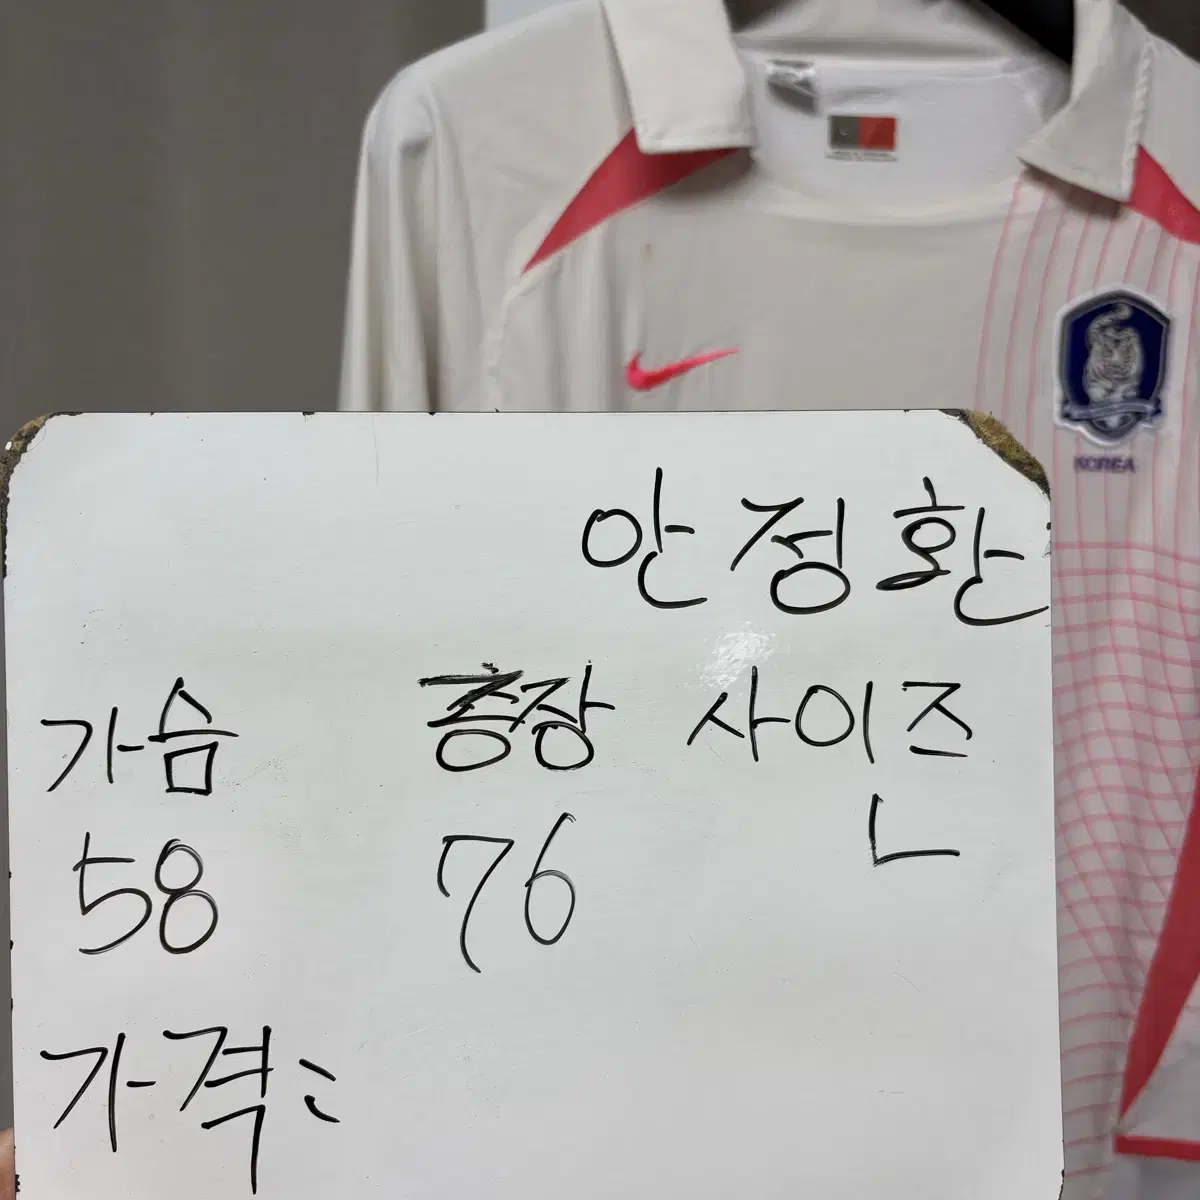 KOREA
안정환
가슴 총장 사이즈
58 76 L
가격: